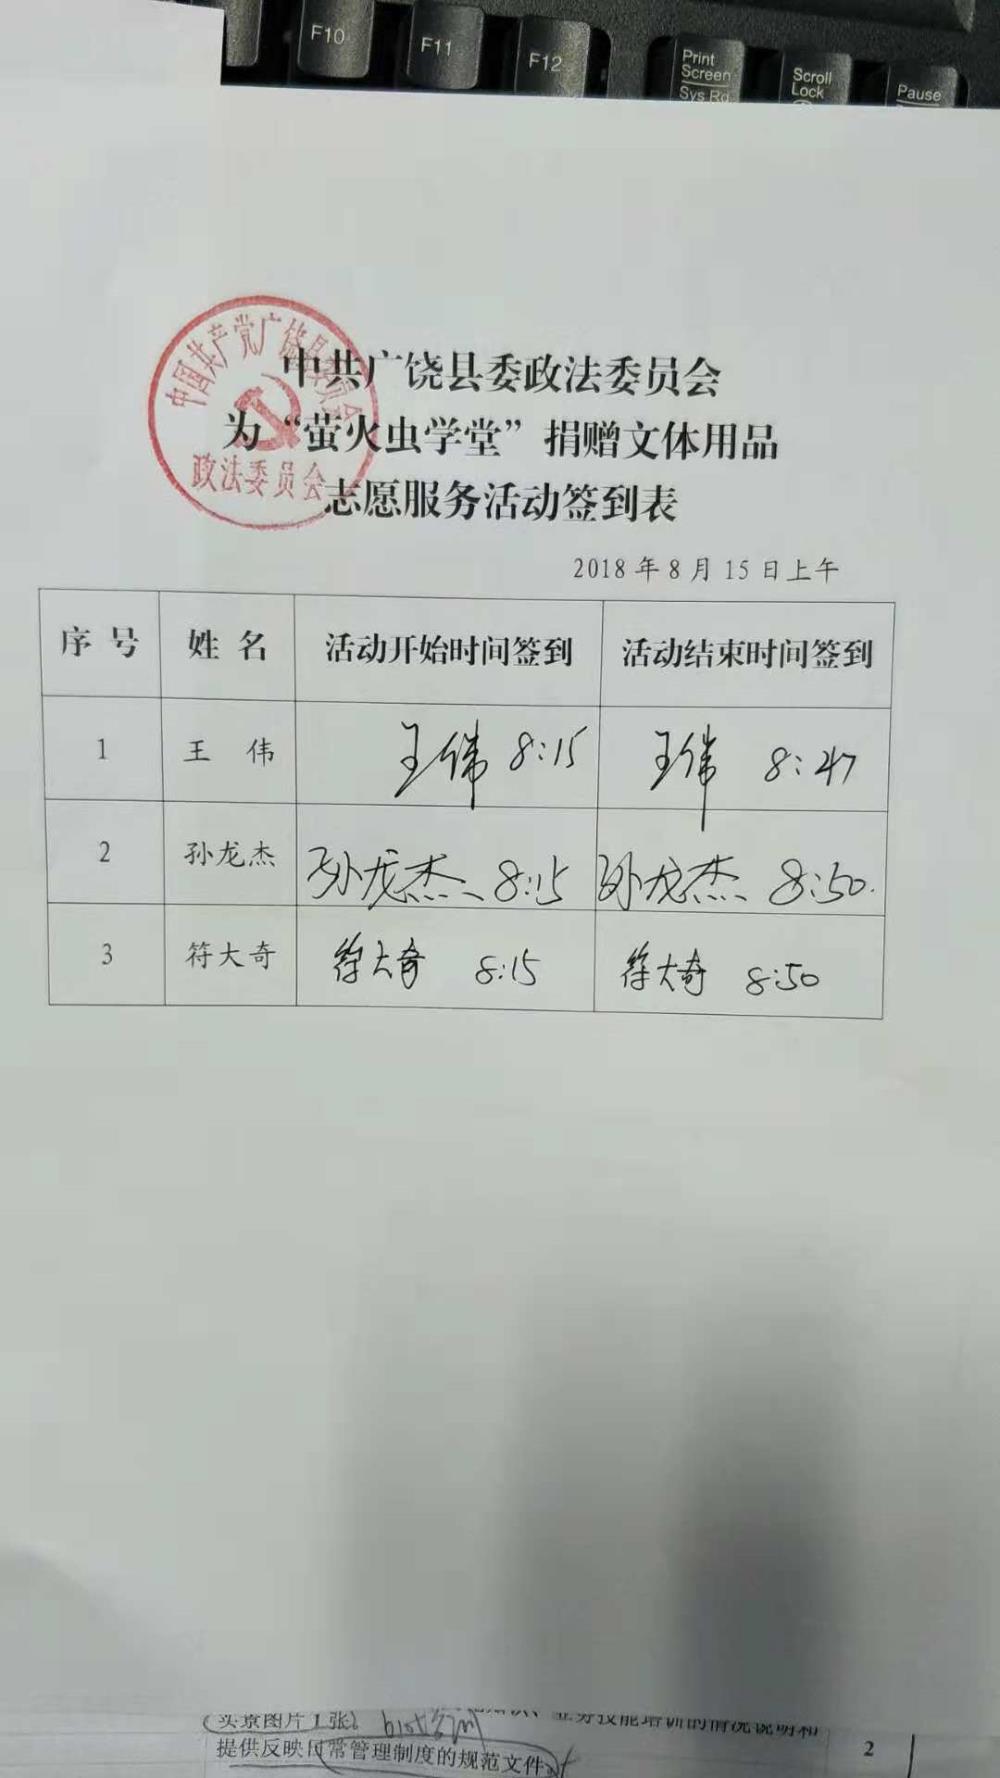 F10 F11 F12 Print Screen Sys Rq Scroll Lock Pause
中国共产党广饶县委员会
政法委员会
中共广饶县委政法委员会
为“萤火虫学堂”捐赠文体用品
志愿服务活动签到表
2018年8月15日上午
序号 姓名 活动开始时间签到 活动结束时间签到
1 王伟 王伟 8:15 王伟 8:47
2 孙龙杰 孙龙杰 8:15 孙龙杰 8:50
3 符大奇 符大奇 8:15 符大奇 8:50
实景图片1张 业务技能培训的情况说明和
提供反映日常管理制度的规范文件 2